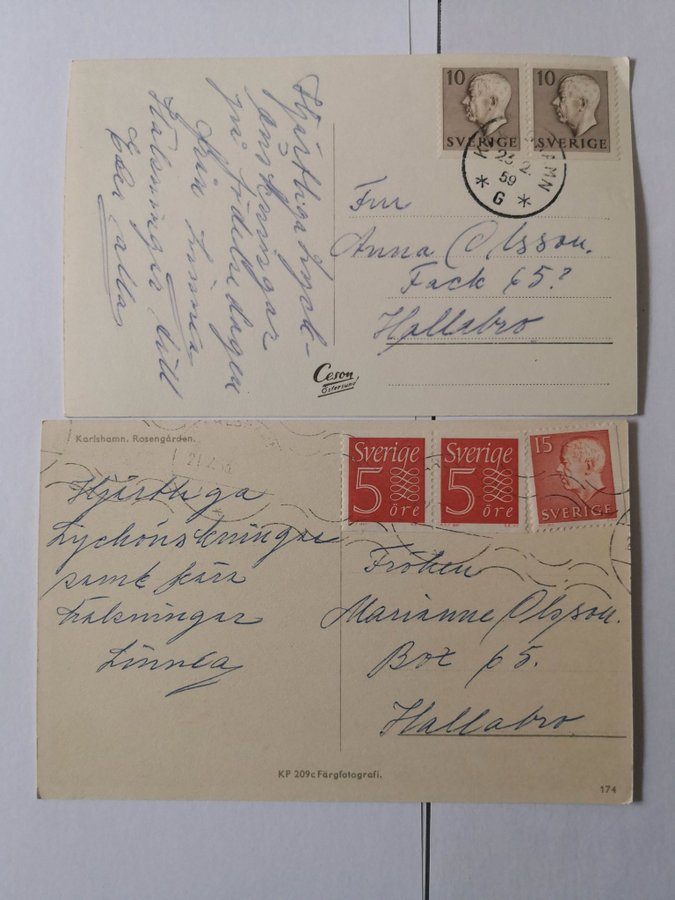 10
10
SVERIGE
SVERIGE
K AMN
23 2
59
* G *
Hjärtliga lyck-
önskningar
på födelsedagen
från Linnea
Hälsningar till
Eder alla
Fru
Anna Olsson.
Fack 65?
Hallabro
Ceson
Östersund
Karlshamn. Rosengården.
Sverige
5
öre
Sverige
5
öre
15
SVERIGE
Hjärtliga
Lyckönskningar
samt kära
hälsningar
Linnea
Fröken
Marianne Olsson.
Box 65.
Hallabro
KP 209c Färgfotografi.
174